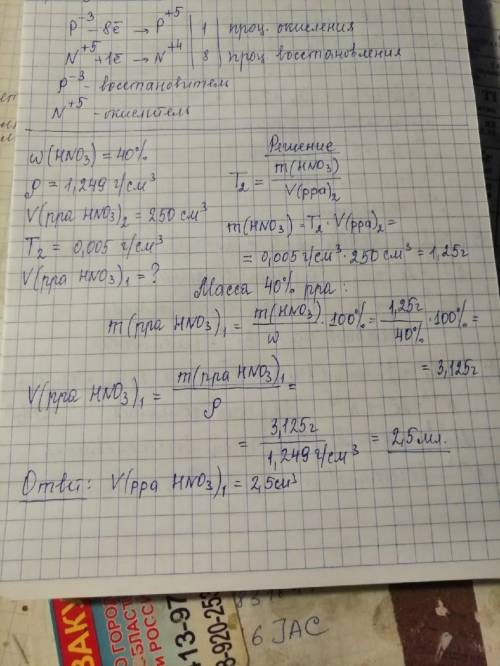 P⁻³ - 8ē → P⁺⁵ | 1 | проц. окисления
N⁺⁵ + 1ē → N⁺⁴ | 8 | проц восстановления
P⁻³ - восстановитель
N⁺⁵ - окислитель
w(HNO₃) = 40%
ρ = 1,249 г/см³
V(рра HNO₃)₂ = 250 см³
T₂ = 0,005 г/см³
V(рра HNO₃)₁ = ?
Решение
T₂ = m(HNO₃) / V(рра)₂
m(HNO₃) = T₂ · V(рра)₂ =
= 0,005 г/см³ · 250 см³ = 1,25г
Масса 40% рра:
m(рра HNO₃)₁ = m(HNO₃) / w · 100% = 1,25г / 40% · 100% =
= 3,125г
V(рра HNO₃)₁ = m(рра HNO₃)₁ / ρ =
= 3,125г / 1,249 г/см³ = 2,5мл.
Ответ: V(рра HNO₃)₁ = 2,5см³
ЗАКУ
О ГОРО
БЛАСТ
И РОССИ
413-97
8-920-253
6 JAC